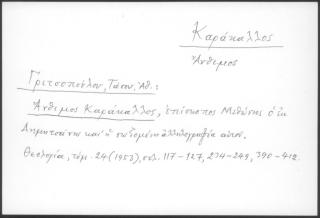 Καράκαλλος
Άνθιμος
Γριτσοπούλου, Τάσου, Αθ.:
Άνθιμος Καράκαλλος, ἐπίσκοπος Μεθώνης ὁ ἐκ
Δημητσάνης καί ἡ σωζομένη ἀλληλογραφία αὐτοῦ.
Θεολογία, τόμ. 24 (1953), σελ. 117-127, 234-249, 390-412.